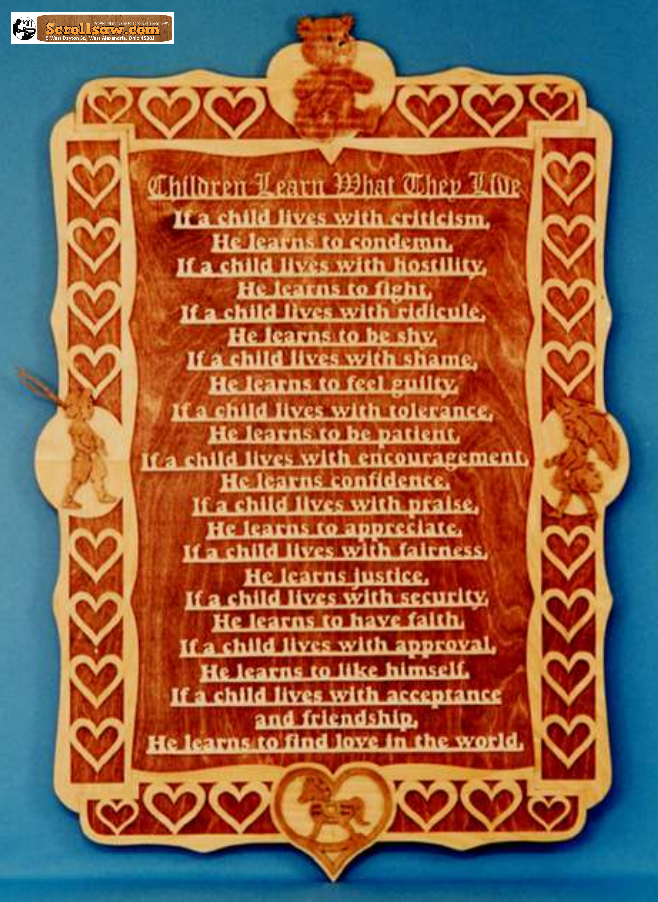 Scrollsaw.com
5 West Dayton St., West Alexandria, Ohio 45381
Children Learn What They Live
If a child lives with criticism,
He learns to condemn.
If a child lives with hostility,
He learns to fight.
If a child lives with ridicule,
He learns to be shy.
If a child lives with shame,
He learns to feel guilty.
If a child lives with tolerance,
He learns to be patient.
If a child lives with encouragement,
He learns confidence.
If a child lives with praise,
He learns to appreciate.
If a child lives with fairness,
He learns justice.
If a child lives with security,
He learns to have faith.
If a child lives with approval,
He learns to like himself.
If a child lives with acceptance
and friendship,
He learns to find love in the world.